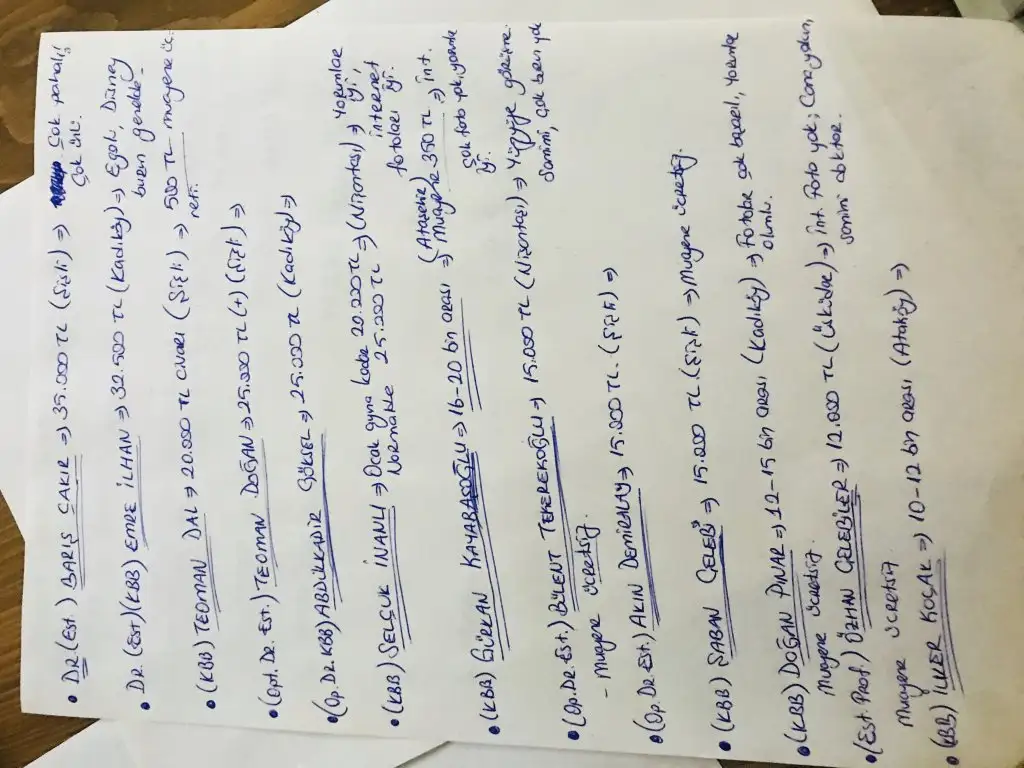 • DR. (Est.) BARIŞ ÇAKIR => 35.000 TL (Şişli) => Çok pahalı;
Çok ünlü.
• DR. (Est)(KBB) EMRE İLHAN => 32.500 TL (Kadıköy) => Egolu, Disney
burun genelde
• (KBB) TEOMAN DAL => 20.000 TL civarı (Şişli) => 500 TL muayene üc-
reti.
• (Opt. Dr. Est.) TEOMAN DOĞAN => 25.000 TL (+) (Şişli) =>
• (Op. Dr. KBB) ABDULKADİR GÖKSEL => 25.000 TL (Kadıköy) =>
• (KBB) SELÇUK İNANLI => Ocak ayına kadar 20.000 TL => (Nişantaşı) => Yorumlar
iyi,
Normalde 25.000 TL => internet
fotoları iyi.
• (KBB) GÜRKAN KAYABAŞOĞLU => 16-20 bin arası => (Ataşehir)
Muayene 350 TL => İnt.
çok foto yok, yorumlar
iyi.
• (Op. Dr. Est.) BÜLENT TEKEREKOĞLU => 15.000 TL (Nişantaşı) => Yüzyüze görüşme.
- Muayene ücretsiz. samimi, çok burun yok
• (Op. Dr. Est) AKIN DEMİRALAY => 15.000 TL. (Şişli) =>
• (KBB) ŞABAN ÇELEBİ => 15.000 TL (Şişli) => Muayene ücretsiz.
• (KBB) DOĞAN PINAR => 12-15 bin arası (Kadıköy) => Fotolar çok başarılı, Yorumlar
muayene ücretsiz. olumlu.
• (Est. Prof.) ÖZHAN ÇELEBİLER => 12.000 TL (Üsküdar) => İnt. Foto yok; Cana yakın,
Muayene ücretsiz samimi doktor.
• (KBB) İLKER KOÇAK => 10-12 bin arası (Ataköy) =>